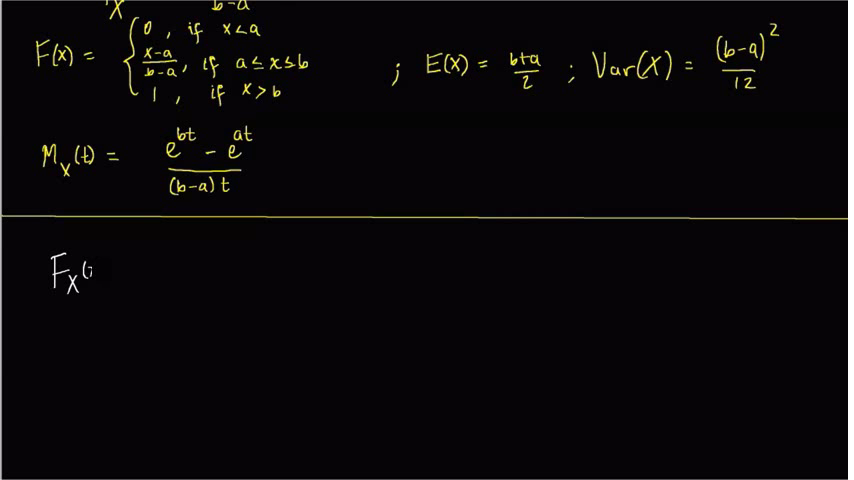 X b-a
F(x) = { 0 , if x<a
x-a/b-a , if a≤x≤b ; E(X) = b+a/2 ; Var(X) = (b-a)^2/12
1 , if x>b
M_X(t) = e^bt - e^at/(b-a)t
F_X(